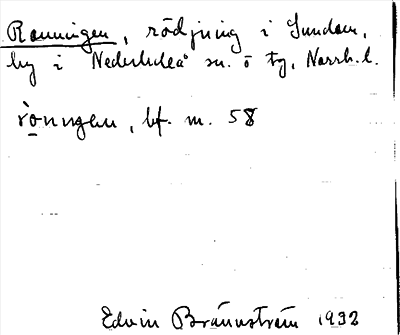 Ronningen, rödjning i Sundom,
by i Nederluleå sn. o tg, Norrb. l.
rònıngen, bf. m. 58
Edvin Brännström 1932